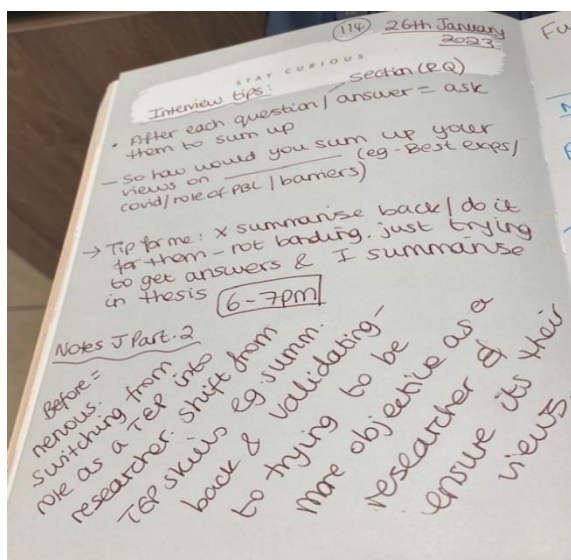 114 26th January
2023
STAY CURIOUS
Interview tips:
Section (RQ)
• After each question / answer = ask
them to sum up
- So how would you sum up your
views on ________ (eg - Best exps/
covid/role of PBL / barriers)
→ Tip for me: x summarise back / do it
for them - not bonding. just trying
to get answers & I summarise
in thesis 6-7pm
Notes J Part. 2
Before =
nervous.
switching from
role as a TEP into
researcher. shift from
TEP skills eg. summ.
back & validating -
to trying to be
more objective as a
researcher &
ensure its their
views.